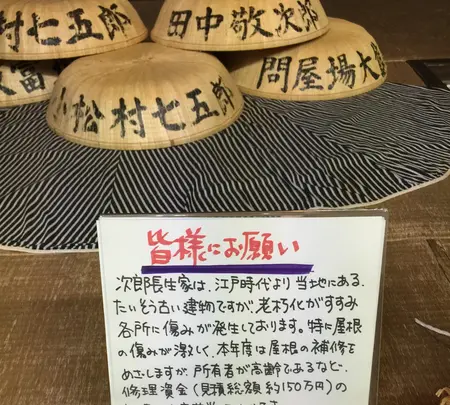 村七五郎
田中敬次郎
富
問屋場大
小松村七五郎
皆様にお願い
次郎長生家は、江戸時代より当地にある
たいそう古い建物ですが、老朽化がすすみ
各所に傷みが発生しております。特に屋根
の傷みが激しく、本年度は屋根の補修を
めざしますが、所有者が高齢であるなど、
修理資金(見積総額約150万円)の